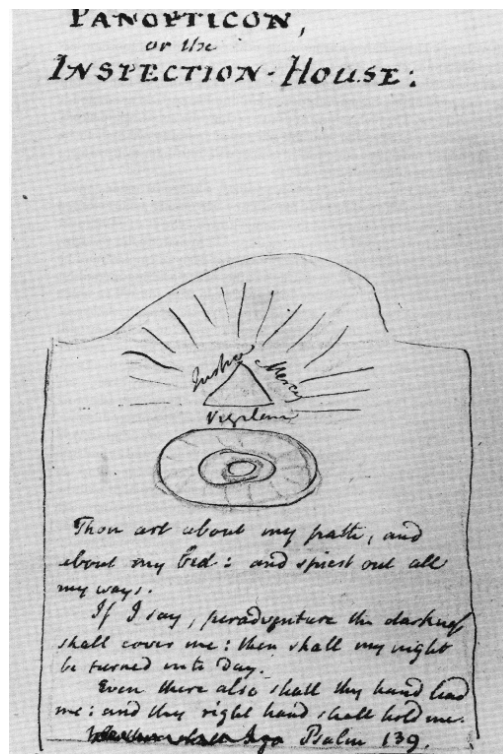 PANOPTICON,
or the
INSPECTION-HOUSE:
Justice
Mercy
Vigilance
Thou art about my path, and
about my bed: and spiest out all
my ways.
If I say, peradventure the darkness
shall cover me: then shall my night
be turned into day.
Even there also shall thy hand lead
me: and thy right hand shall hold me.
Psalm 139